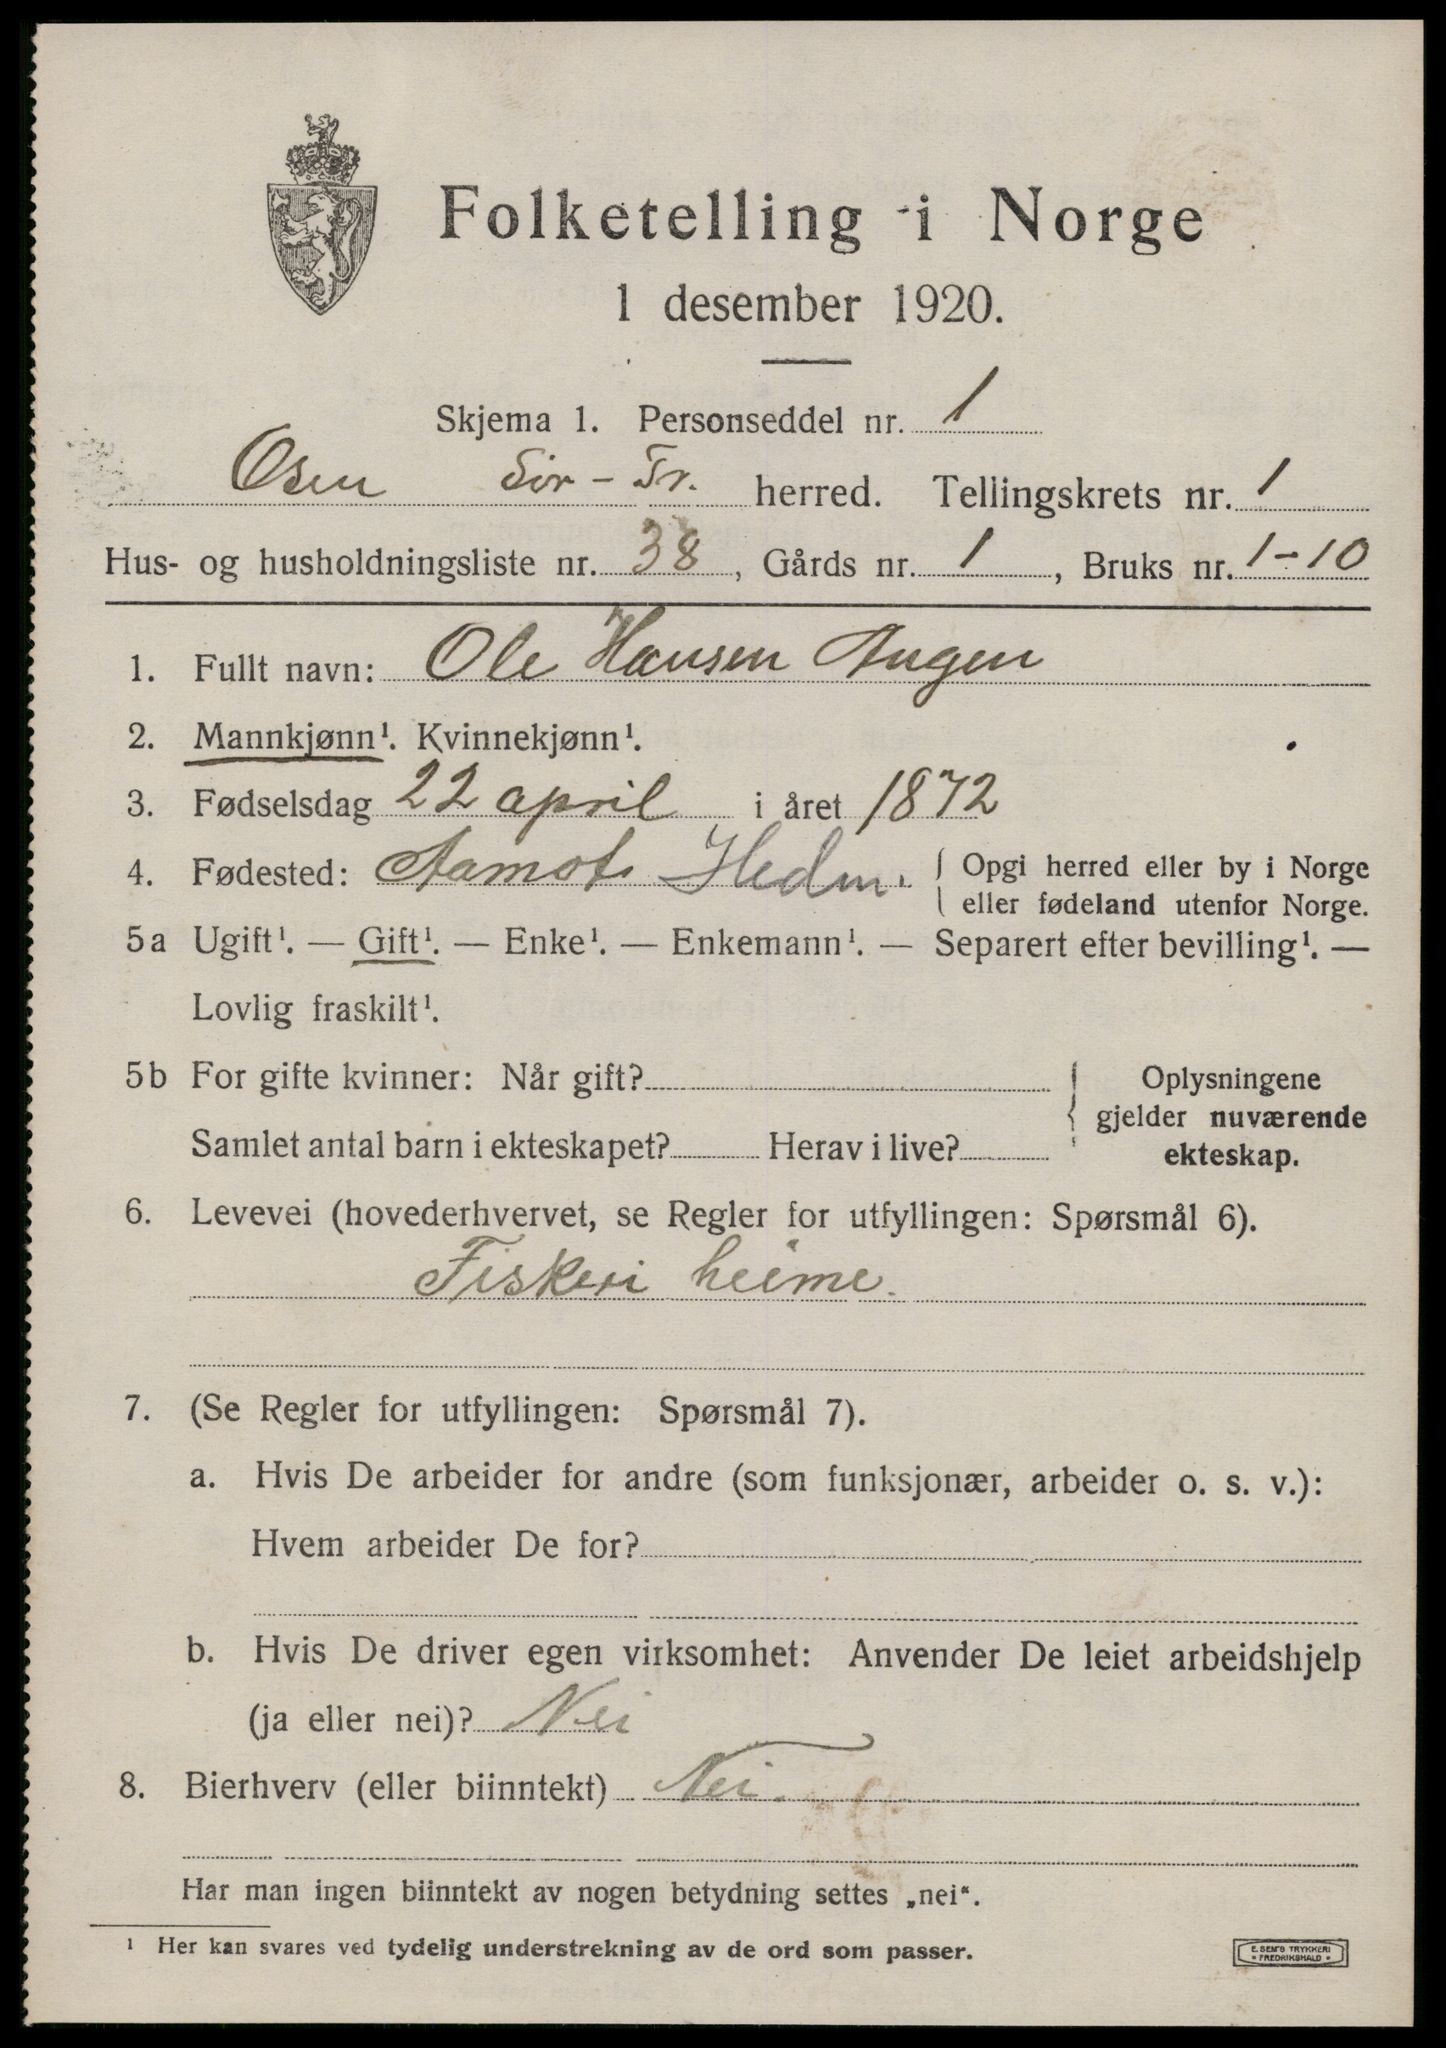 Folketelling i Norge
1 desember 1920.
Skjema 1. Personseddel nr. 1
Osen Sør-Tr. herred. Tellingskrets nr. 1
Hus- og husholdningsliste nr. 38, Gårds nr. 1, Bruks nr. 1-10
1. Fullt navn: Ole Hansen Augen
2. Mannkjønn¹. Kvinnekjønn¹.
3. Fødselsdag 22 april i året 1872
4. Fødested: Aamot Hedm. { Opgi herred eller by i Norge
eller fødeland utenfor Norge.
5a Ugift¹. — Gift¹. — Enke¹. — Enkemann¹. — Separert efter bevilling¹. —
Lovlig fraskilt¹.
5b For gifte kvinner: Når gift? { Oplysningene
gjelder nuværende
Samlet antal barn i ekteskapet? Herav i live? ekteskap.
6. Levevei (hovederhvervet, se Regler for utfyllingen: Spørsmål 6).
Fiskeri heime.
7. (Se Regler for utfyllingen: Spørsmål 7).
a. Hvis De arbeider for andre (som funksjonær, arbeider o. s. v.):
Hvem arbeider De for?
b. Hvis De driver egen virksomhet: Anvender De leiet arbeidshjelp
(ja eller nei)? Nei
8. Bierhverv (eller biinntekt) Nei.
Har man ingen biinntekt av nogen betydning settes „nei“.
¹ Her kan svares ved tydelig understrekning av de ord som passer.
E. SEM'S TRYKKERI
• FREDRIKSHALD •